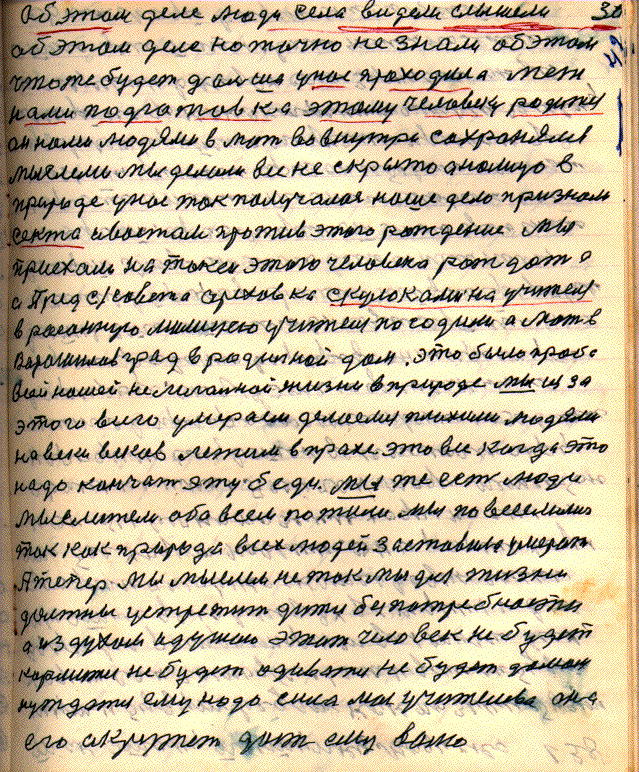 Об этом деле люди села видели слышели 30
об этом деле но точно не знали об этом 42
что же будет дальше у нас проходила меж
нами подгатовка этому человеку родитя
он нами людями в мат во внутре сохранялся
мыслели мы делали все не скрыто
природе у нас так получалося наше дело признали
секта и востали против этого рождение мы
приехали на токси этого человека рождат я
а Пред с/совета ореховка с кулоками на учителя
в расонную милицию учителя погодили а мать в
Ворошиловград в родичной дом. Это было
вой нашей не желанной жизни в природе мы из за
этого всего умераем делаемся плохими людями
на веки веков лежим в прахе это все когда это
надо кончат эту беду. мы же есть люди
мыслители обо всем пожили мы повеселилис
так как природа всех людей заставила умерат
А тепер мы мыслем не так мы для жизни
должны устретит дитя бес потребности
а из духом и душею этот человек не будет
кормится не будет одиватя не будет домом
нуждатя ему надо сила мы учителева она
его окружет даст ему волю